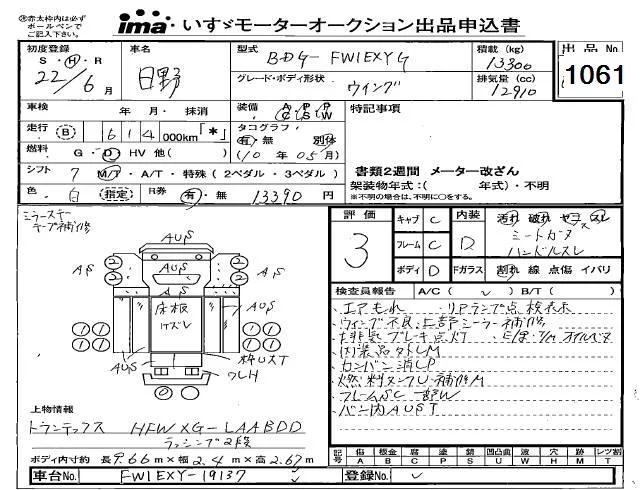 ※赤太枠内は必ずボールペンでご記入下さい。
ima いすゞモーターオークション出品申込書
初度登録 S・H・R 22/6月
車名 日野
型式 BDG-FW1EXYG
積載(kg) 13300
出品No. 1061
グレード・ボディ形状 ウイング
排気量(cc) 12910
車検 年・月・抹消
装備 A/C P/S P/W
特記事項
走行 B 614 000km「*」
タコグラフ 有・無 別体
燃料 G・D・HV 他( )
(10年05月)
シフト 7 M/T・A/T・特殊(2ペダル・3ペダル)
書類2週間 メーター改ざん
架装物年式:( 年式)・不明
色 白 指定 R券 有・無 13390円
※不明の場合は、不明に○をする。
ミラーステー テープ補修
評価 3
キャブ C
フレーム C
ボディ D
内装 D
汚れ 破れ ヤニ スレ
ミートカタ
ハンドルスレ
Fガラス 割れ 線 点傷 イバリ
検査員報告 A/C( ✓ ) B/T( )
エアもれ ・リアランプ点検表示
ウイング不良・上部シーラー補修
排気ブレーキ点灯
内装品欠LM
カンバン消しP
燃料タンクU補修M
フレームSC一部W
バン内AUST
AUS
AUS
AS
AS
AS
AS
② ② ② ②
床板
AUS
AUS
① ① ① ① ① ① ① ①
枠UST
AUS
クレH
上物情報
トランテックス HFWXG-LAABDD
ラッシング2段
ボディ内寸約 長9.66m×幅2.4m×高2.67m
記号 傷A 板金B 腐C 塗P 錆S 凹凸曲U 波W 穴H 跡M レツ割T
車台No. FW1EXY-19137
登録No.